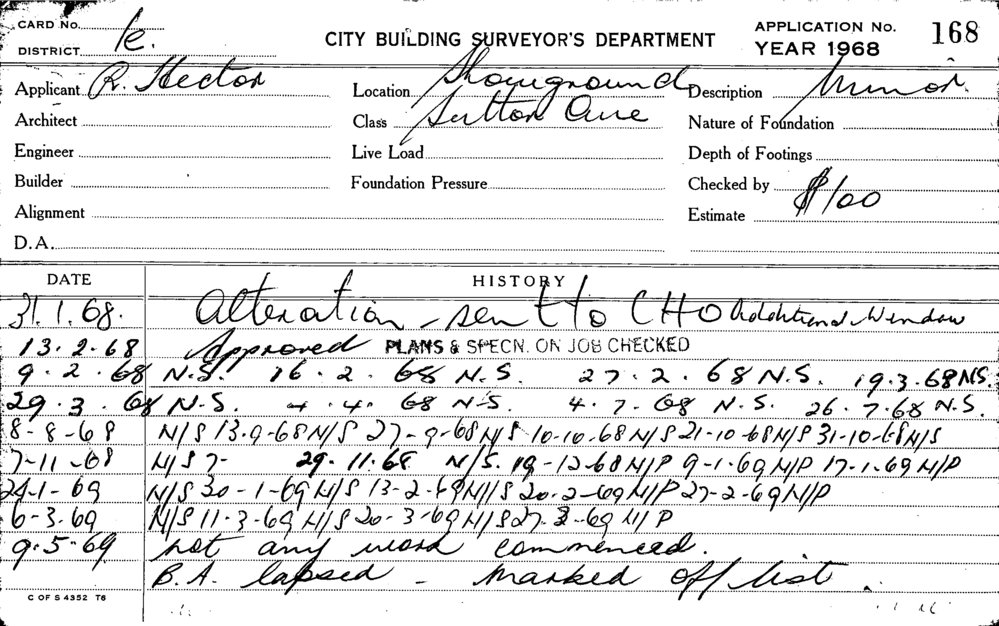 CARD No.
DISTRICT
CITY BUILDING SURVEYOR'S DEPARTMENT
APPLICATION No. 168
YEAR 1968
Applicant R. Hector
Location Showground
Description Minor.
Architect
Class Sutton Ave
Nature of Foundation
Engineer
Live Load
Depth of Footings
Builder
Foundation Pressure
Checked by
Alignment
Estimate $100
D.A.
DATE HISTORY
31.1.68. Alteration - sent to CHO Additional Window
13.2.68 Approved PLANS & SPECN. ON JOB CHECKED
9.2.68 N.S. 16.2.68 N.S. 27.2.68 N.S. 19.3.68 N.S.
29.3.68 N.S. 4.4.68 N.S. 4.7.68 N.S. 26.7.68 N.S.
8-8-68 N/S 13-9-68 N/S 27-9-68 N/S 10-10-68 N/S 21-10-68 N/S 31-10-68 N/S
7-11-68 N/S 7- 29.11.68 N/S. 19-12-68 N/P 9-1-69 N/P 17-1-69 N/P
24-1-69 N/S 30-1-69 N/S 13-2-69 N/S 20-2-69 N/P 27-2-69 N/P
6-3-69 N/S 11-3-69 N/S 20-3-69 N/S 27-3-69 N/P
9.5.69 not any work commenced.
B.A. lapsed - marked off list.
C OF S 4352 T6